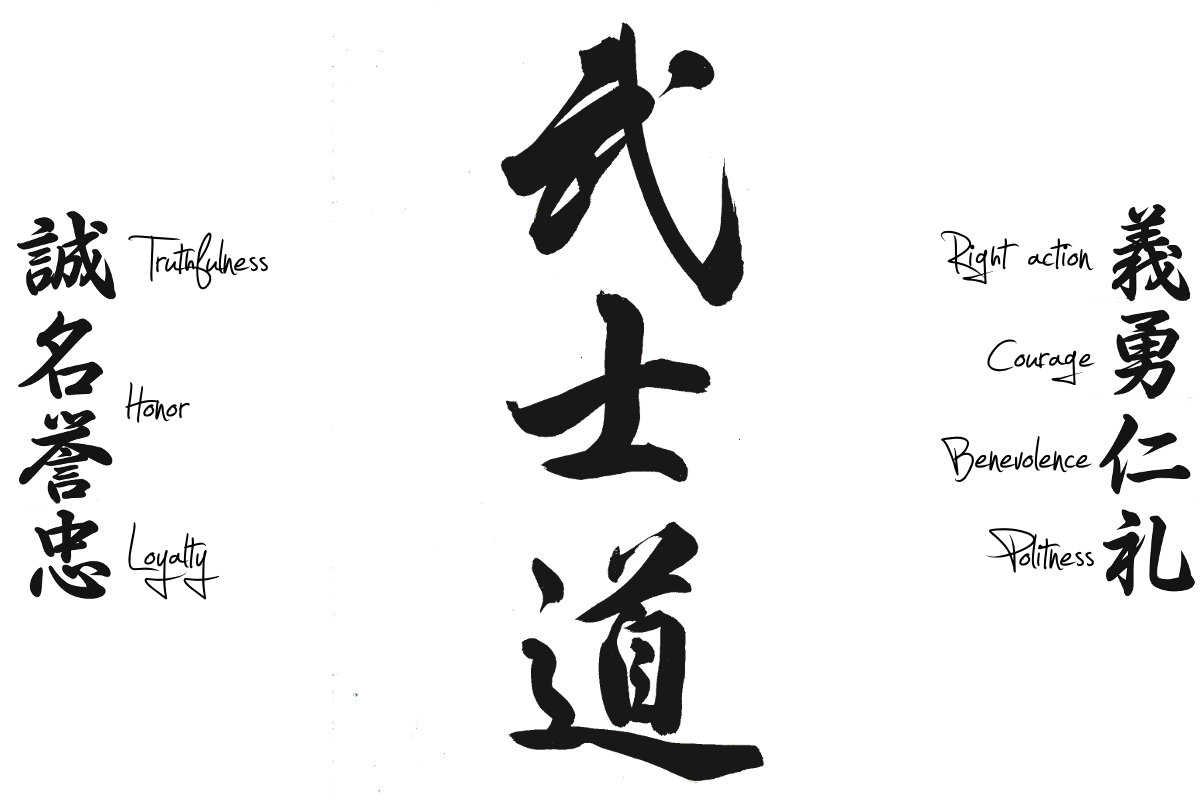 武士道
義
Right action
勇
Courage
仁
Benevolence
礼
Politness
誠
Truthfulness
名誉
Honor
忠
Loyalty